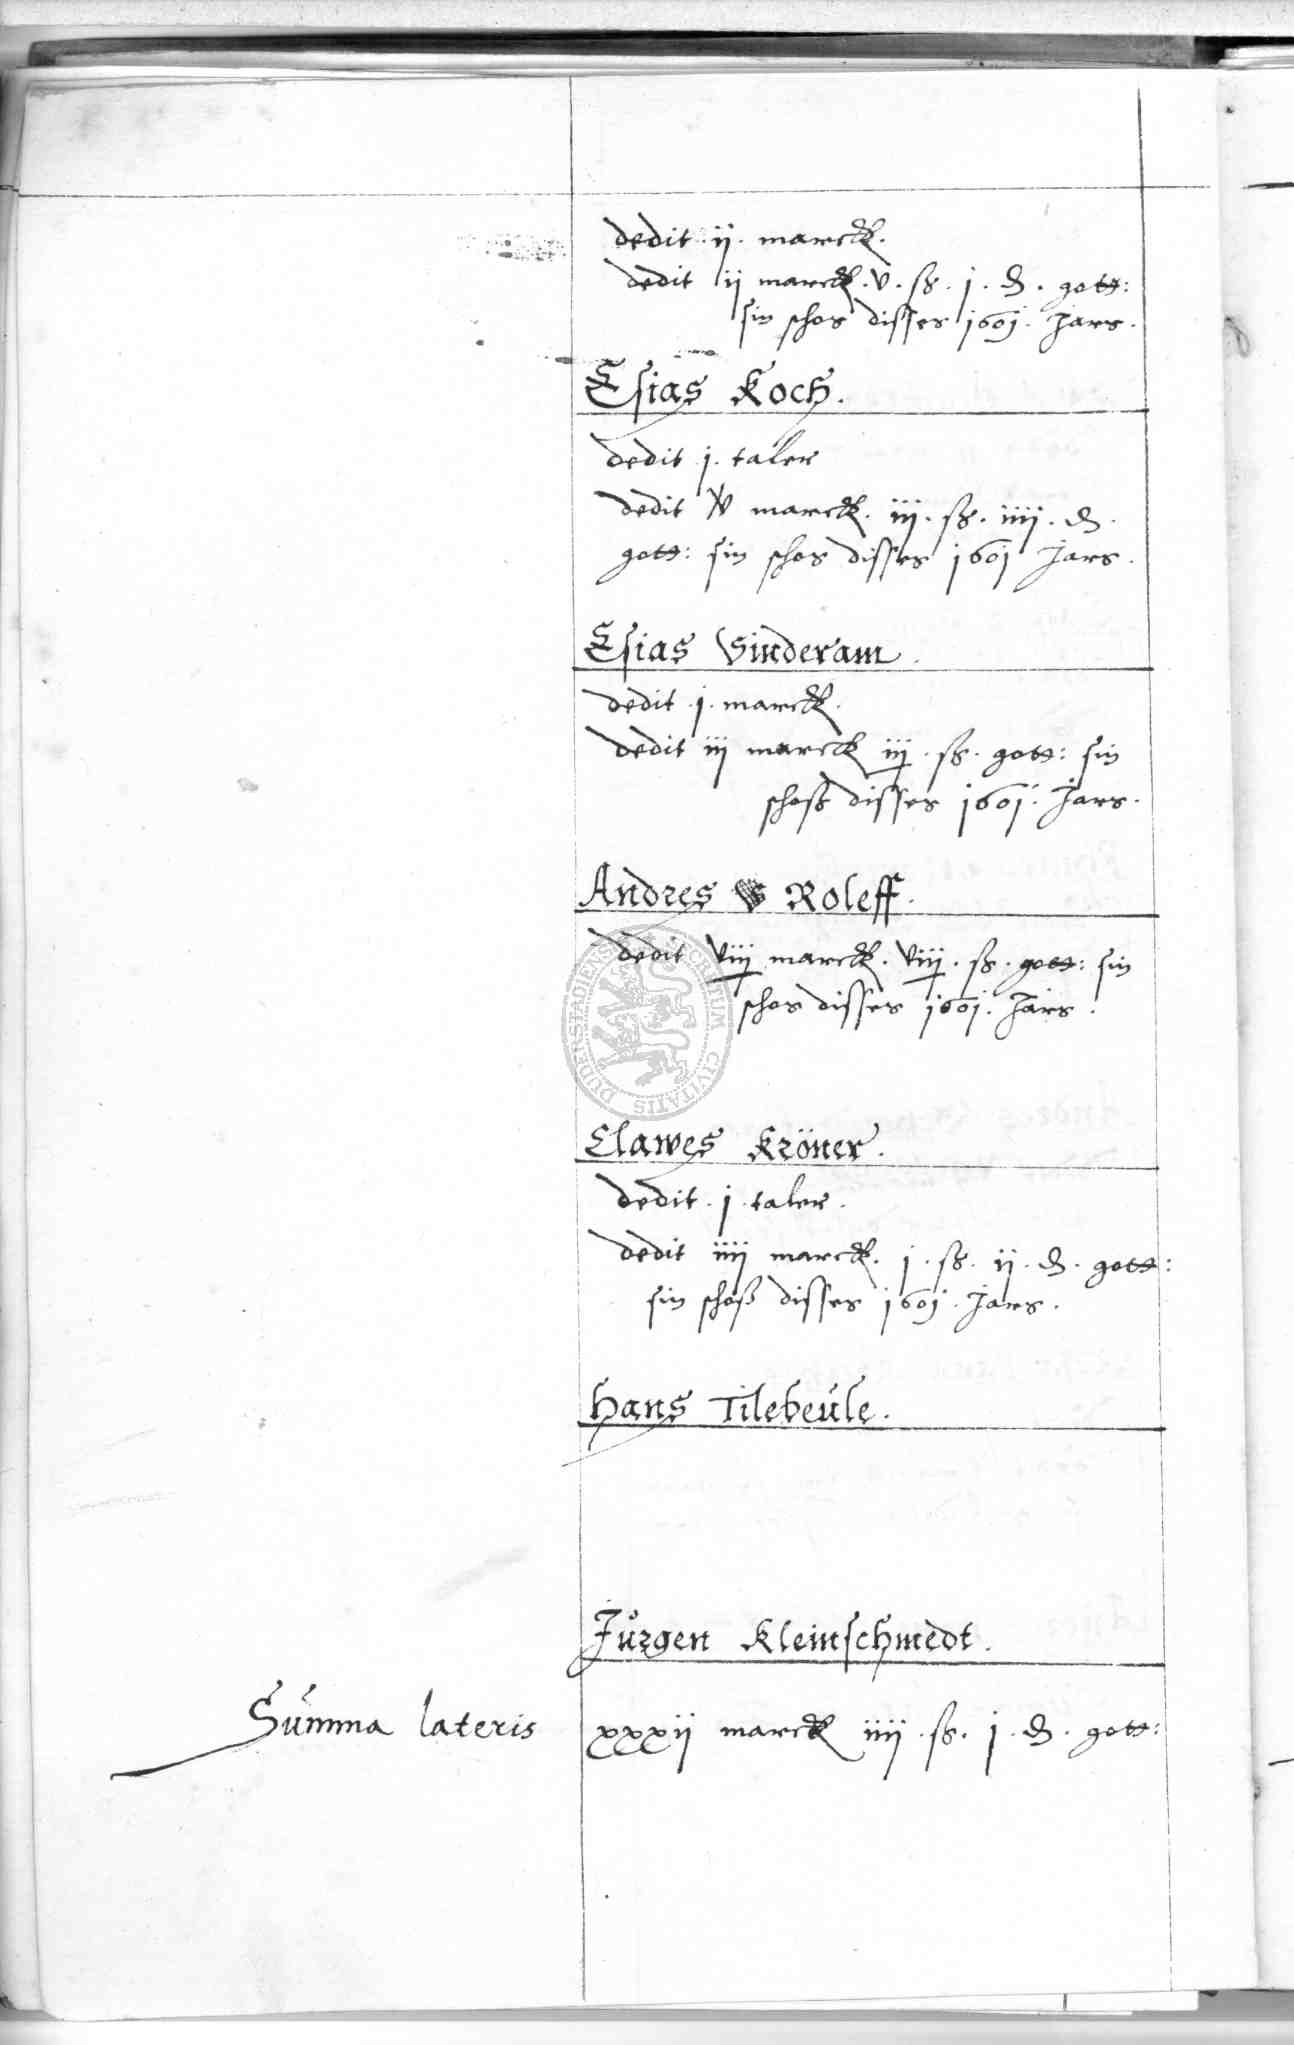 dedit ij. marck.
dedit ij marck. v. ß. j. ₰. gott:
sin schos disses 1601. Jars.
Esias Koch.
dedit j. taler
dedit marck. iij. ß. iiij. ₰.
gott: sin schos disses 1601 Jars.
Esias Sinderam.
dedit j. marck.
dedit iij marck iij. ß. gott: sin
schoß disses 1601. Jars.
Andres Roleff.
dedit viij marck. viij. ß. gott: sin
schos disses 1601. Jars.
Clawes Kröner.
dedit. j. taler.
dedit iiij marck. j. ß. ij. ₰. gott:
sin schoß disses 1601. Jars.
Hans Tilebeule.
Jurgen Kleinschmedt.
Summa lateris xxxij marck iiij. ß. j. ₰. gott:
SECRETUM CIVITATIS DUDERSTADIENSIS